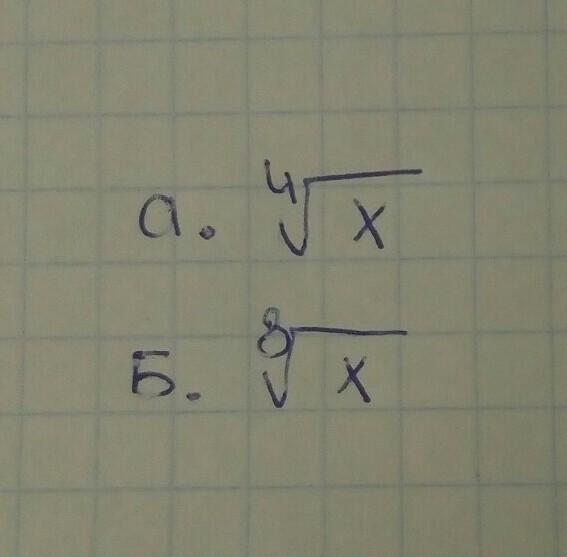 а. ⁴√x
Б. ⁸√x